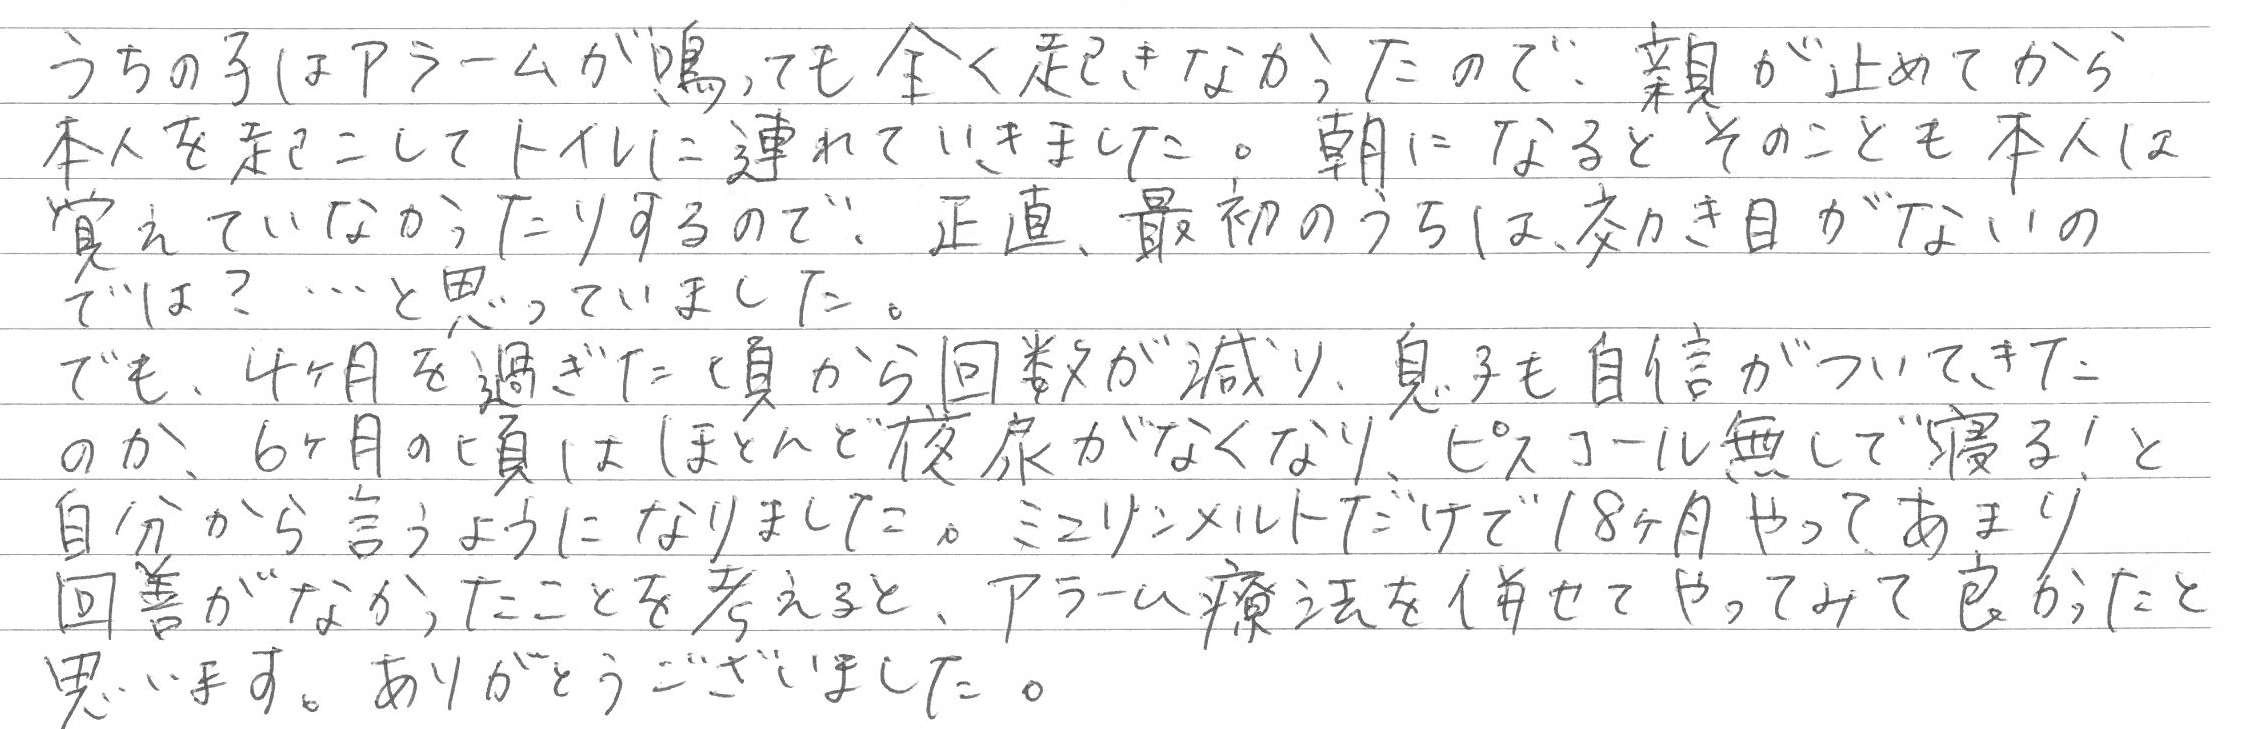 うちの子はアラームが鳴っても全く起きなかったので、親が止めてから
本人を起こしてトイレに連れていきました。朝になるとそのことも本人は
覚えていなかったりするので、正直、最初のうちは、効き目がないの
では？…と思っていました。
でも、4ヶ月を過ぎた頃から回数が減り、息子も自信がついてきた
のか、6ヶ月の頃はほとんど夜尿がなくなり、ピスコール無しで寝る！と
自分から言うようになりました。ミニリンメルトだけで18ヶ月やってあまり
回善がなかったことを考えると、アラーム療法を併せてやってみて良かったと
思います。ありがとうございました。